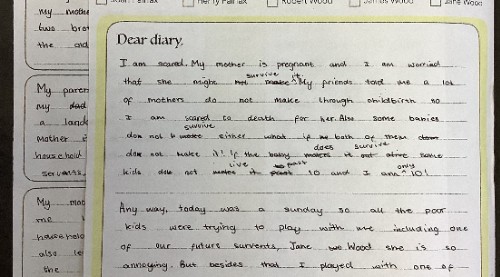 Henry Fairfax
Robert Wood
James Wood
Jane Wood
my mothe
two brot
the end
My paren
my dad
a lando
Mother
household
servants
My mo
me
household
also le
she
Dear diary,
I am scared. My mother is pregnant and I am worried
that she might not make survive it. My friends told me a lot
of mothers do not make through childbirth so
I am scared to death for her. Also some babies
don not make survive either what if both of them
doe not make it! If the baby makes does survive it out alive some
kids doe not makes live it past to past 10 and I am only 10!
Any way, today was a sunday so all the poor
kids were trying to play with me including one
of our future survents, Jane Wood she is so
annoying. But besides that I played with one of